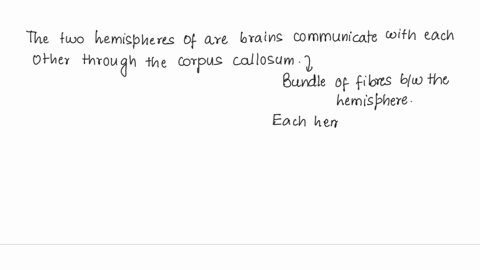 The two hemispheres of are brains communicate with each
other through the corpus callosum.
Bundle of fibres b/w the
hemisphere.
Each her